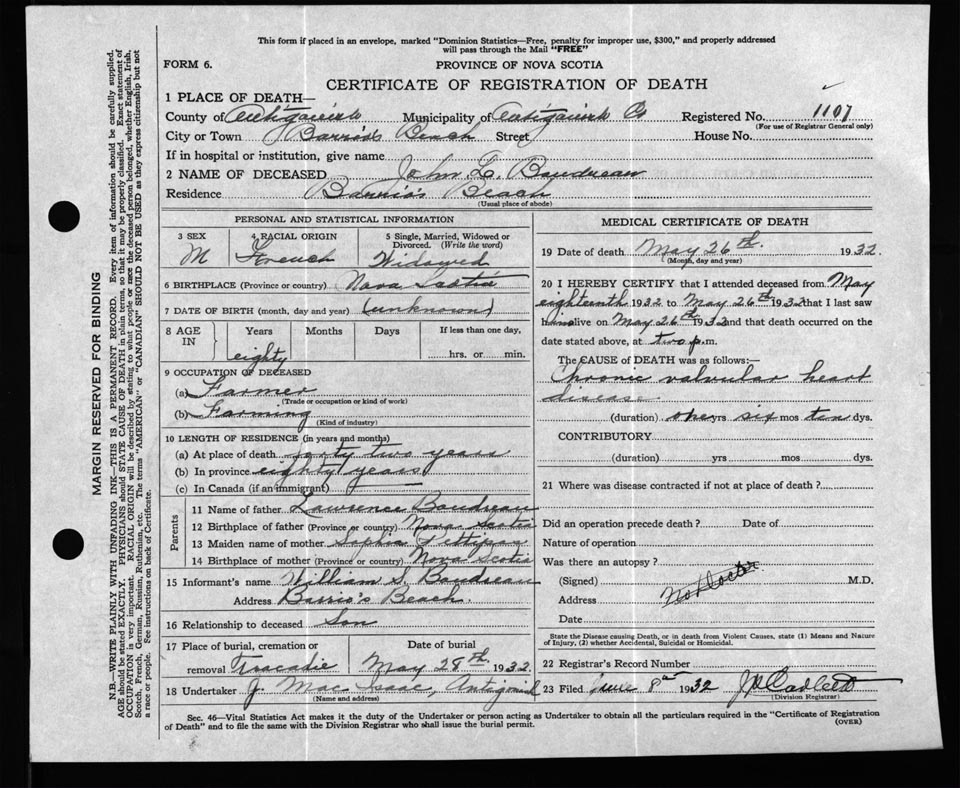 This form if placed in an envelope, marked "Dominion Statistics—Free, penalty for improper use, $300," and properly addressed
will pass through the Mail "FREE"
FORM 6.
PROVINCE OF NOVA SCOTIA
CERTIFICATE OF REGISTRATION OF DEATH
1 PLACE OF DEATH—
County of Antigonish Municipality of Antigonish Co Registered No. 1107
(For use of Registrar General only)
City or Town Barrio's Beach Street House No.
If in hospital or institution, give name
2 NAME OF DECEASED John L. Boudreau
Residence Barrio's Beach
(Usual place of abode)
PERSONAL AND STATISTICAL INFORMATION
3 SEX 4 RACIAL ORIGIN 5 Single, Married, Widowed or
Divorced. (Write the word)
M French Widowed
6 BIRTHPLACE (Province or country) Nova Scotia
7 DATE OF BIRTH (month, day and year) (unknown)
8 AGE IN Years Months Days If less than one day,
eighty hrs. or min.
9 OCCUPATION OF DECEASED
(a) Farmer
(Trade or occupation or kind of work)
(b) Farming
(Kind of industry)
10 LENGTH OF RESIDENCE (in years and months)
(a) At place of death forty two years
(b) In province eighty years
(c) In Canada (if an immigrant)
Parents
11 Name of father Lawrence Boudreau
12 Birthplace of father (Province or country) Nova Scotia
13 Maiden name of mother Sophia Pettipas
14 Birthplace of mother (Province or country) Nova Scotia
15 Informant's name William S. Boudreau
Address Barrio's Beach.
16 Relationship to deceased Son
17 Place of burial, cremation or Date of burial
removal Tracadie May 28th. 1932
18 Undertaker J. MacIsaac, Antigonish
(Name and address)
MEDICAL CERTIFICATE OF DEATH
19 Date of death May 26th. 1932
(Month, day and year)
20 I HEREBY CERTIFY that I attended deceased from May
eighteenth 1932 to May 26th 1932 that I last saw
him alive on May 26th 1932 and that death occurred on the
date stated above, at two p.m.
The CAUSE OF DEATH was as follows:—
Chronic valvular heart
disease.
(duration) one yrs six mos ten dys.
CONTRIBUTORY
(duration) yrs mos dys.
21 Where was disease contracted if not at place of death?
Did an operation precede death? Date of
Nature of operation
Was there an autopsy?
(Signed) M.D.
Address No Doctor
Date
State the Disease causing Death, or in death from Violent Causes, state (1) Means and Nature
of Injury, (2) whether Accidental, Suicidal or Homicidal.
22 Registrar's Record Number
23 Filed June 8th 1932
(Division Registrar)
Sec. 46—Vital Statistics Act makes it the duty of the Undertaker or person acting as Undertaker to obtain all the particulars required in the "Certificate of Registration
of Death" and to file the same with the Division Registrar who shall issue the burial permit.
(OVER)
MARGIN RESERVED FOR BINDING
N.B.—WRITE PLAINLY WITH UNFADING INK—THIS IS A PERMANENT RECORD. Every item of information should be carefully supplied.
AGE should be stated EXACTLY. PHYSICIANS should STATE CAUSE OF DEATH in plain terms, so that it may be properly classified. Exact statement of
OCCUPATION is very important. RACIAL ORIGIN will be described by stating to what people or race the deceased person belonged, whether English, Irish,
Scotch, French, German, Russian, Ruthenian, etc. The terms "AMERICAN" or "CANADIAN" SHOULD NOT BE USED as they express citizenship but not
a race or people. See instructions on back of Certificate.